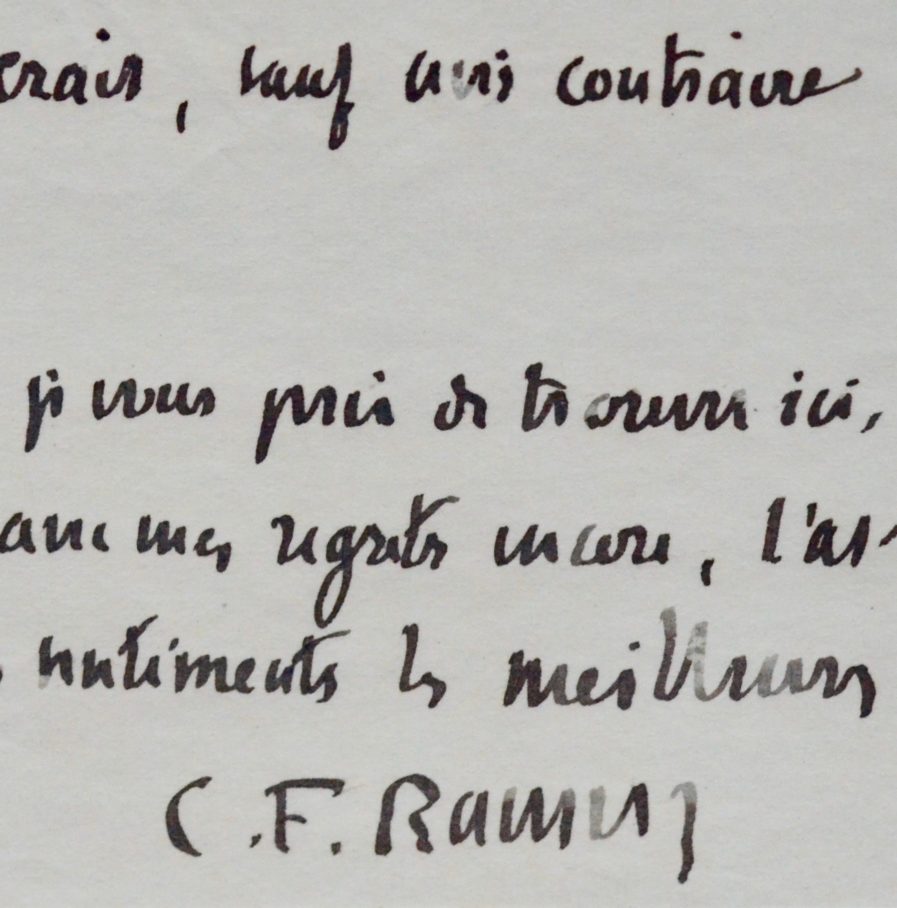 erais, sauf avis contraire
je vous prie de trouver ici,
avec mes regrets encore, l'as-
sentiments les meilleurs
C.F. Ramuz